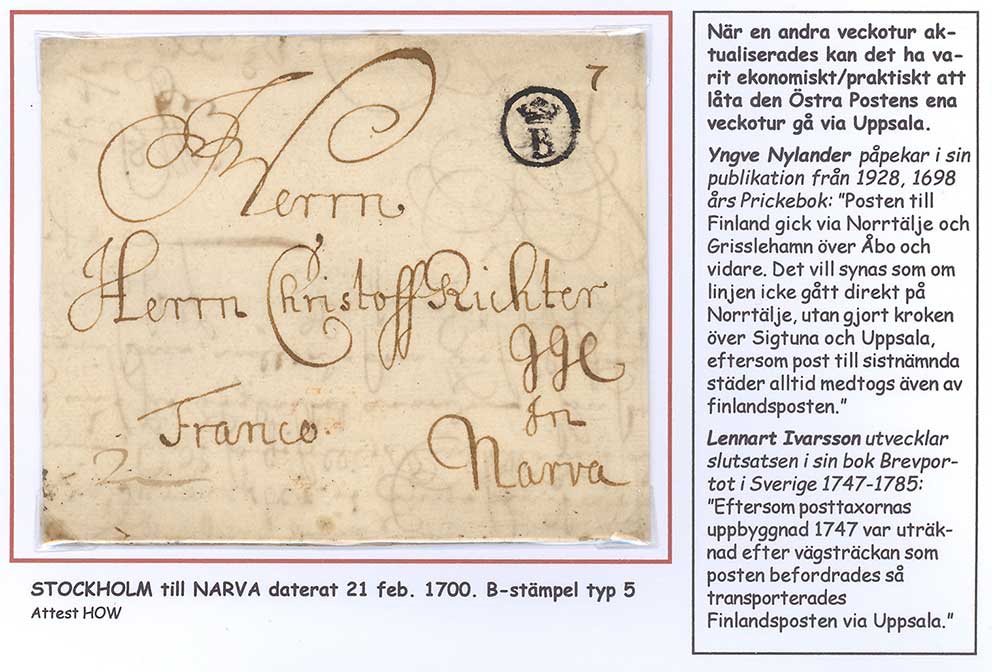 7
B
Herrn
Herrn Christoff Richter
gge
In
Narva
Franco.
2
STOCKHOLM till NARVA daterat 21 feb. 1700. B-stämpel typ 5
Attest HOW
När en andra veckotur ak-
tualiserades kan det ha va-
rit ekonomiskt/praktiskt att
låta den Östra Postens ena
veckotur gå via Uppsala.
Yngve Nylander påpekar i sin
publikation från 1928, 1698
års Prickebok: "Posten till
Finland gick via Norrtälje och
Grisslehamn över Åbo och
vidare. Det vill synas som om
linjen icke gått direkt på
Norrtälje, utan gjort kroken
över Sigtuna och Uppsala,
eftersom post till sistnämnda
städer alltid medtogs även av
finlandsposten."
Lennart Ivarsson utvecklar
slutsatsen i sin bok Brevpor-
tot i Sverige 1747-1785:
"Eftersom posttaxornas
uppbyggnad 1747 var uträk-
nad efter vägsträckan som
posten befordrades så
transporterades
Finlandsposten via Uppsala."